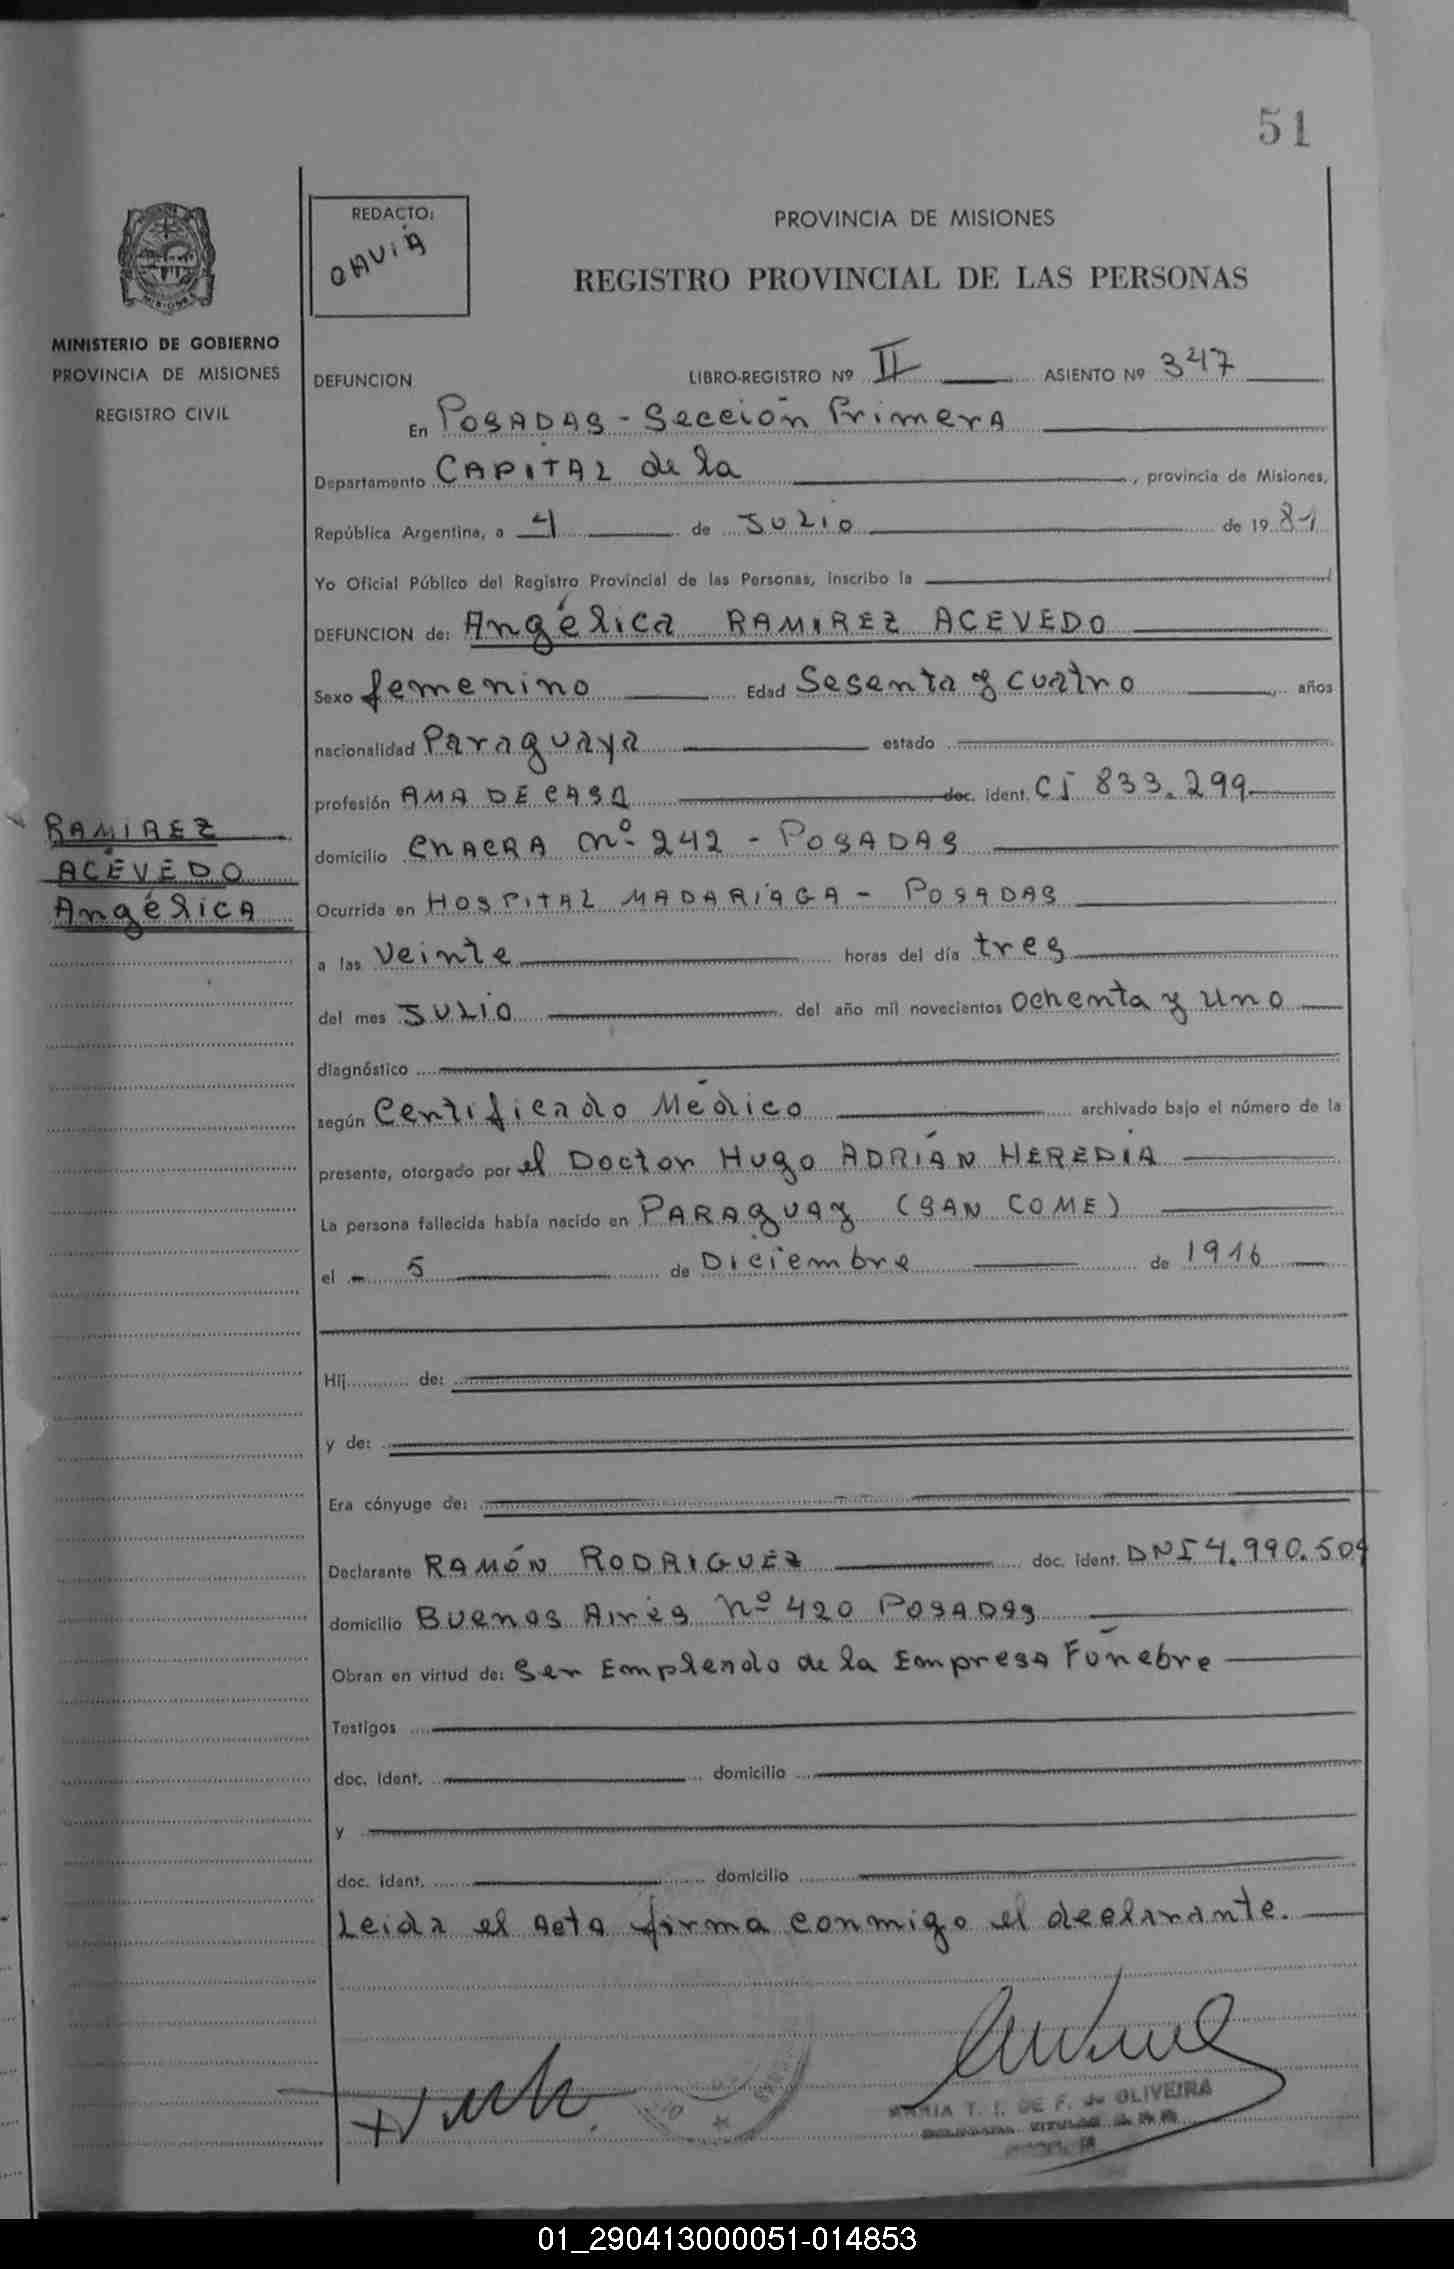 51
REDACTO:
DAVIÑA
PROVINCIA DE MISIONES
REGISTRO PROVINCIAL DE LAS PERSONAS
MISIONES
MINISTERIO DE GOBIERNO
PROVINCIA DE MISIONES
REGISTRO CIVIL
DEFUNCION LIBRO-REGISTRO Nº II ASIENTO Nº 347
En POSADAS - Sección Primera
Departamento CAPITAL de la , provincia de Misiones,
República Argentina, a 4 de JULIO de 19 81
Yo Oficial Público del Registro Provincial de las Personas, inscribo la
DEFUNCION de: Angélica RAMIREZ ACEVEDO
Sexo femenino Edad Sesenta y cuatro años
nacionalidad Paraguaya estado
profesión AMA DE CASA doc. ident. CI 833.299
domicilio CHACRA nº 242 - POSADAS
RAMIREZ
ACEVEDO
Angélica
Ocurrida en HOSPITAL MADARIAGA - POSADAS
a las Veinte horas del día tres
del mes JULIO del año mil novecientos ochenta y uno
diagnóstico
según Certificado Médico archivado bajo el número de la
presente, otorgado por el Doctor Hugo ADRIÁN HEREDIA
La persona fallecida había nacido en PARAGUAY (SAN COME)
el 5 de Diciembre de 1916
Hij de:
y de:
Era cónyuge de:
Declarante RAMÓN RODRIGUEZ doc. ident. DNI 4.990.509
domicilio Buenos Aires nº 420 POSADAS
Obran en virtud de: Ser Empleado de la Empresa Fúnebre
Testigos
doc. ident. domicilio
y
doc. ident. domicilio
Leida el acta firma conmigo el declarante.
MARIA T. I. DE F. de OLIVEIRA
01_290413000051-014853